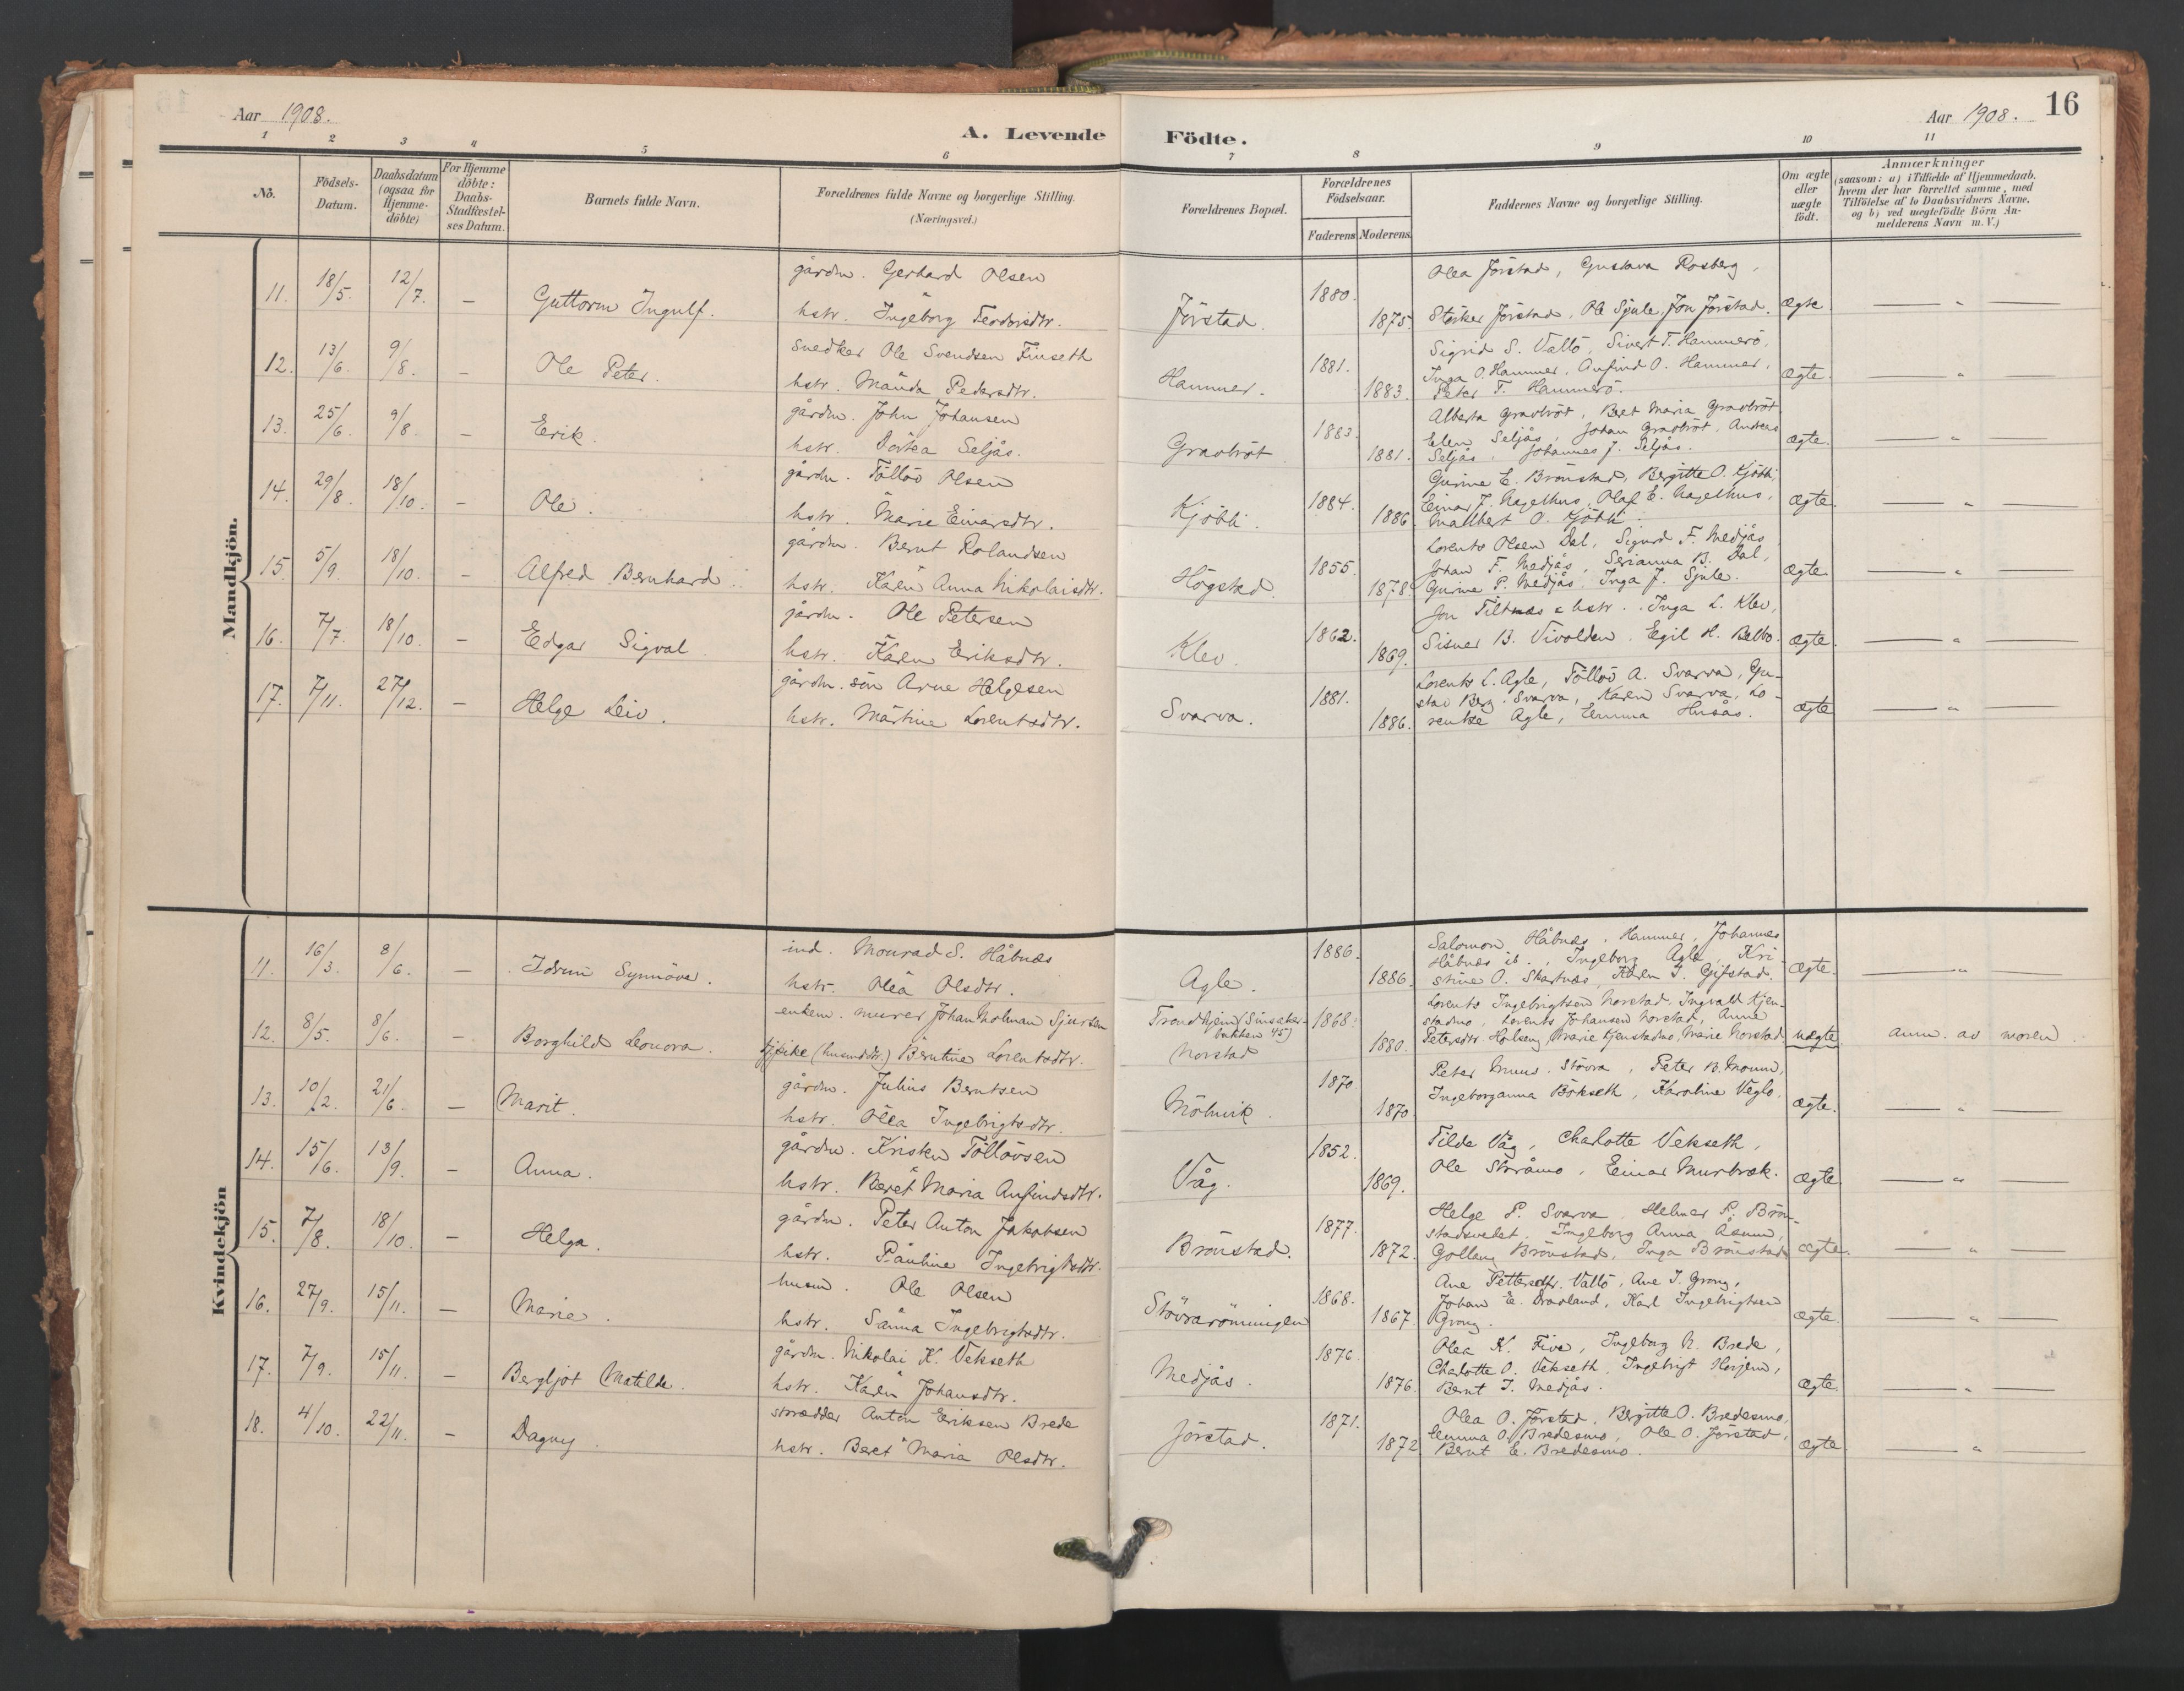 Aar 1908.
A. Levende Födte.
Aar 1908. 16
1 2 3 4 5 6 7 8 9 10 11
No.
Födsels-Datum.
Daabsdatum (ogsaa for Hjemme-döbte)
For Hjemme döbte: Daabs-Stadfæstel-ses Datum.
Barnets fulde Navn.
Forældrenes fulde Navne og borgerlige Stilling. (Næringsvei.)
Forældrenes Bopæl.
Forældrenes Födselsaar.
Faderens Moderens
Faddernes Navne og borgerlige Stilling.
Om ægte eller uægte födt.
Anmærkninger
(saasom: a) i Tilfælde af Hjemmedaab, hvem der har forrettet samme, med Tilföielse af to Daabsvidners Navne, og b) ved uægtefödte Börn An-melderens Navn m. V.)
Mandkjön.
11. 18/5. 12/7. – Guttorm Ingulf.
gårdm. Gerhard Olsen
hstr. Ingeborg Teodorsdtr.
Jörstad. 1880. 1875.
Olea Jörstad, Gustava Rosberg,
Stärker Jörstad, Ole Sjule, Jon Jörstad. ægte — „ —
12. 13/6. 9/8. – Ole Peter.
snedker Ole Svendsen Finseth
hstr. Manda Pedersdtr.
Hammer. 1881. 1883.
Sigrid S. Vallö, Sivert T. Hammerö,
Inga O. Hammer, Anfind O. Hammer,
Peter T. Hammerö. ægte. — „ —
13. 25/6. 9/8. – Erik.
gårdm. John Johansen
hstr. Dortea Seljås.
Gravbröt 1883. 1881.
Alberta Gravbröt, Beret Maria Gravbröt
Elen Seljås, Johan Gravbröt, Andreas
Seljås, Johannes J. Seljås. ægte. — „ —
14. 29/8. 18/10. – Ole.
gårdm. Töllöv Olsen
hstr. Marie Einarsdtr.
Kjöbli. 1884. 1886
Gurine E. Brönstad, Bergitte O. Kjöbli,
Einar J. Hagelhus, Olaf E. Hagelhus,
O. Kjöbli. ægte. — „ —
15. 5/9. 18/10. – Alfred Bernhard.
gårdm. Bernt Rolandsen
hstr. Karen Anna Nikolaisdtr.
Högstad. 1855. 1878.
Lorents Olsen Dal, Sigurd F. Medjås
Johan F. Medjås, Serianna B. Dal,
Gurine P. Medjås, Inga J. Sjule. ægte — „ —
16. 7/7. 18/10. – Edgar Sigval.
gårdm. Ole Petersen
hstr. Karen Eriksdtr.
Klev. 1862. 1869.
Jon Tiltnes & hstr. Inga L. Klev,
Sisner B. Vivolden, Egil H. Belbo. ægte. — „ —
17. 7/11. 27/12. – Helge Leiv.
gårdm. sön Arne Helgesen
hstr. Martine Lorentsdtr.
Svarva. 1881. 1886.
Lorents L. Agle, Töllöv A. Svarva, Gu-
stav Berg Svarva, Karen Svarva, Lo-
rentse Agle, Emma Husås. ægte — „ —
Kvindekjön
11. 16/3. 8/6. – Idrun Synnöve.
ind. Monrad S. Håbnes
hstr. Olea Olsdtr.
Agle. 1886. 1886.
Salomon Håbnes, Hammer, Johannes
Håbnes ib., Ingeborg Agle, Kri-
stine O. Skartnes, Karen J. Gifstad. ægte. — „ —
12. 8/5. 8/6. – Borghild Leonora.
enkem. murer Johan Holman Sjursen
pike (husmdtr.) Berntine Lorentsdtr.
Trondhjem (Sinsaker-
bakken 45)
Norstad 1868. 1880.
Lorents Ingebrigtsen Norstad, Ingvald Kjen-
stadmo, Lorents Johansen Norstad, Anne
Petersdtr. Holseng, Marie Kjenstadmo, Marie Norstad uægte anm. av moren
13. 10/2. 21/6. – Marit.
gårdm. Julius Berntsen
hstr. Olea Ingebrigtsdtr.
Mölnvik. 1870. 1870.
Peter Muus, Stövra, Peter B. Moum,
Ingeborganna Bökseth, Karoline Veglo. ægte. — „ —
14. 15/6. 13/9. – Anna.
gårdm. Kristen Töllövsen
hstr. Beret Maria Anfindsdtr.
Våg. 1852. 1869.
Tilda Våg, Charlotte Vekseth,
Ole Moråmo, Einar Murbræk. ægte — „ —
15. 7/8. 18/10. – Helga.
gårdm. Peter Anton Jakobsen
hstr. Pauline Ingebrigtsdtr.
Brönstad. 1877. 1872.
Helge P. Svarva, Helmer P. Brön-
stadsvedet, Ingeborg Anna Åsum,
Gollaug Brönstad, Inga Brönstad ægte. — „ —
16. 27/9. 15/11. – Marie.
husm. Ole Olsen
hstr. Sanna Ingebrigtsdtr.
Stövrarönningen 1868. 1867.
Ane Pettersdtr. Vallö, Ane I. Grong,
Johan E. Dravland, Karl Ingebrigtsen
Grong. ægte. — „ —
17. 7/9. 15/11. – Bergljot Matilde.
gårdm. Nikolai K. Vekseth
hstr. Karen Johansdtr.
Medjås. 1876. 1876.
Olea K. Five, Ingeborg N. Brede,
Charlotte O. Vekseth, Ingebrigt Horjem,
Bernt J. Medjås. ægte. — „ —
18. 4/10. 22/11. – Dagny.
skrædder Anton Eriksen Brede
hstr. Beret Maria Olsdtr.
Jörstad. 1871. 1872
Olea O. Jörstad, Bergitte O. Bredesmo,
Emma O. Bredesmo, Ole O. Jörstad,
Bernt E. Bredesmo. ægte — „ —